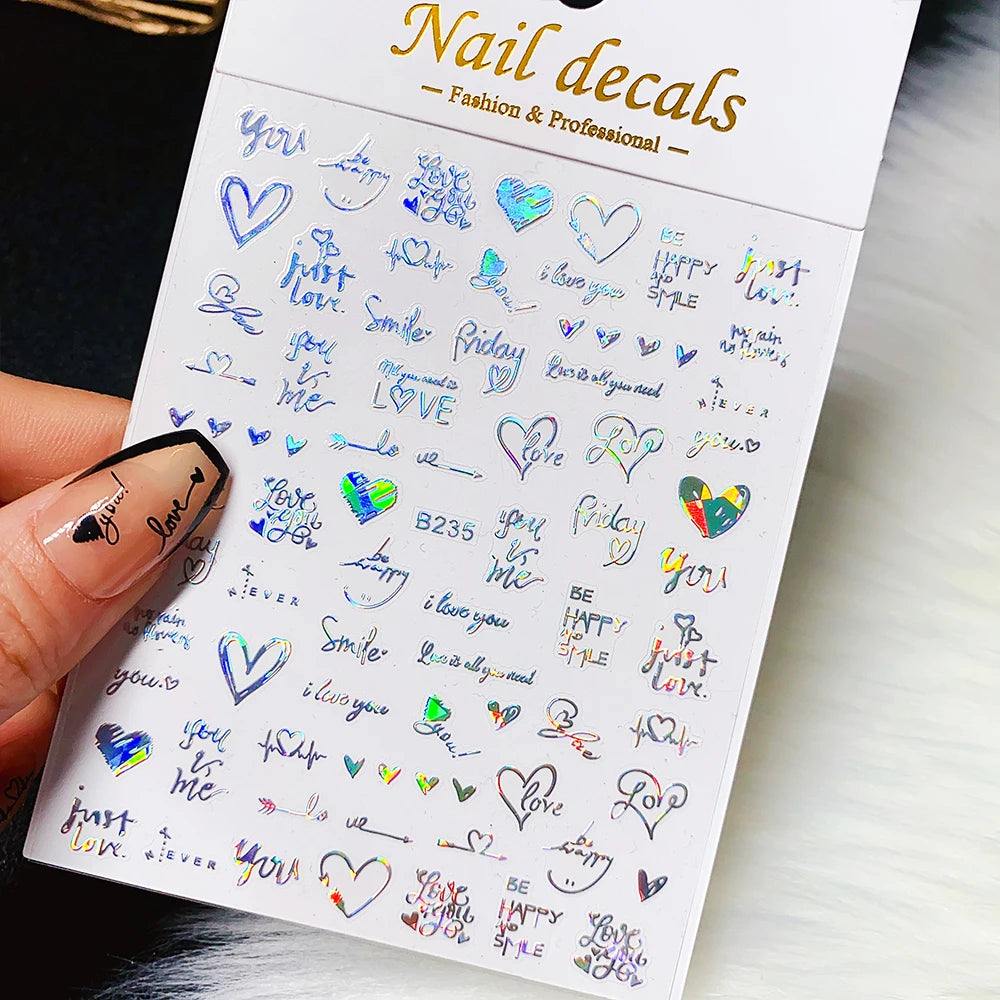 Nail decals
— Fashion & Professional —
you
be
happy
Love
you
BE
HAPPY
AND
SMILE
just
love.
just
love.
you!
i love you
Love
Smile
friday
no rain
no flowers
you
&
me
All you need is
LOVE
Love is all you need
NEVER
you.
lo ve
love
Love
you!
love
Love
you
B235
you
&
me
friday
you
day
be
happy
NEVER
i love you
BE
HAPPY
AND
SMILE
no rain
no flowers
Smile
Love is all you need
just
love.
you.
i love you
you!
Love
you
&
me
love
Love
just
love.
lo ve
be
happy
NEVER
you
Love
you
BE
HAPPY
AND
SMILE
Love
you